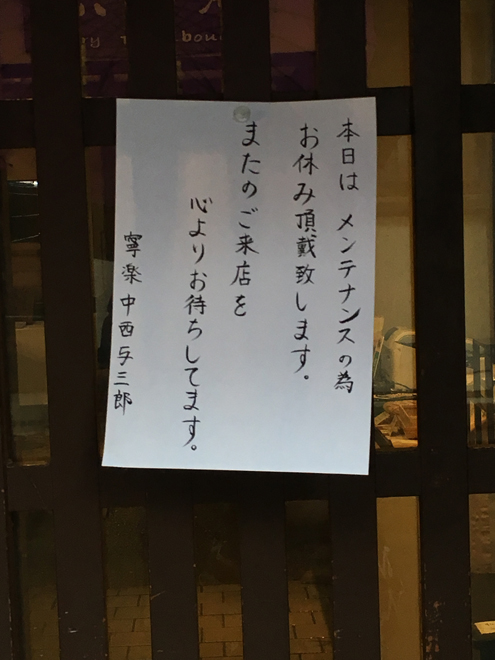 本日は メンテナンスの為
お休み頂戴致します。
またのご来店を
心よりお待ちしてます。
寧楽 中西与三郎